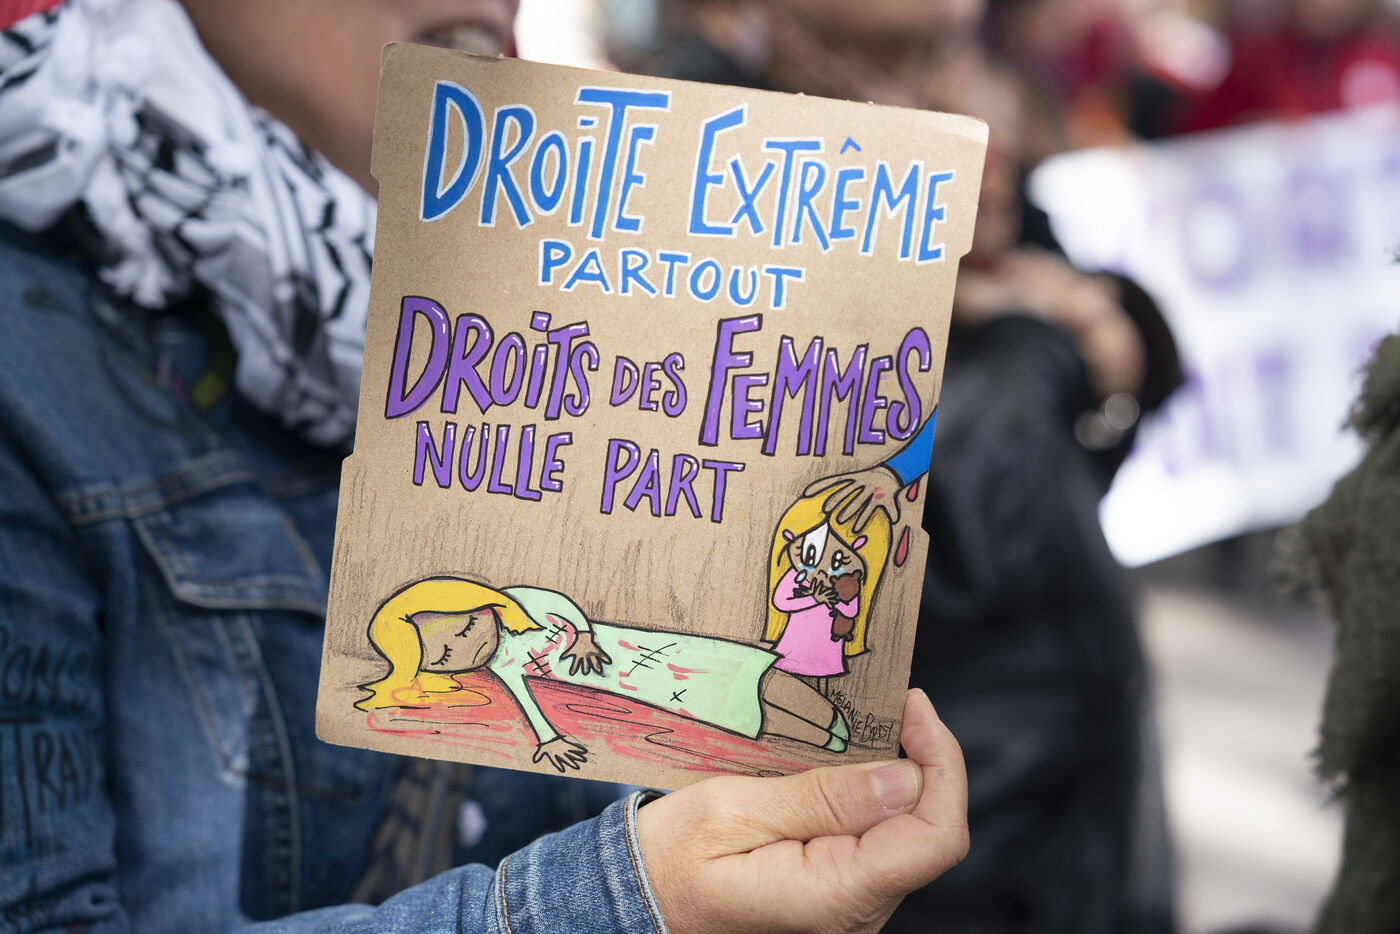 DROITE EXTRÊME
PARTOUT
DROITS DES FEMMES
NULLE PART
MÉLANIE BODY